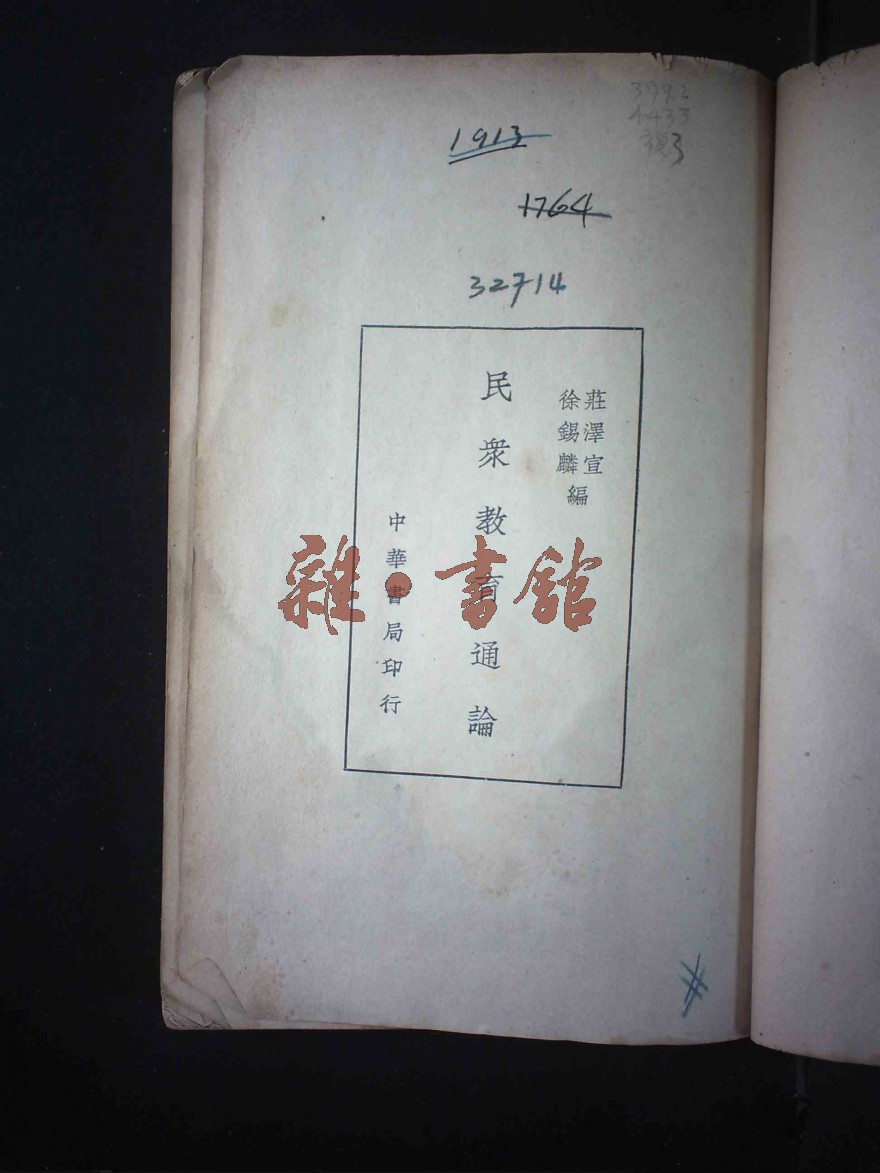 1913
1764
32714
莊澤宣
徐錫麟
編
民衆教育通論
中華書局印行
雜·書館